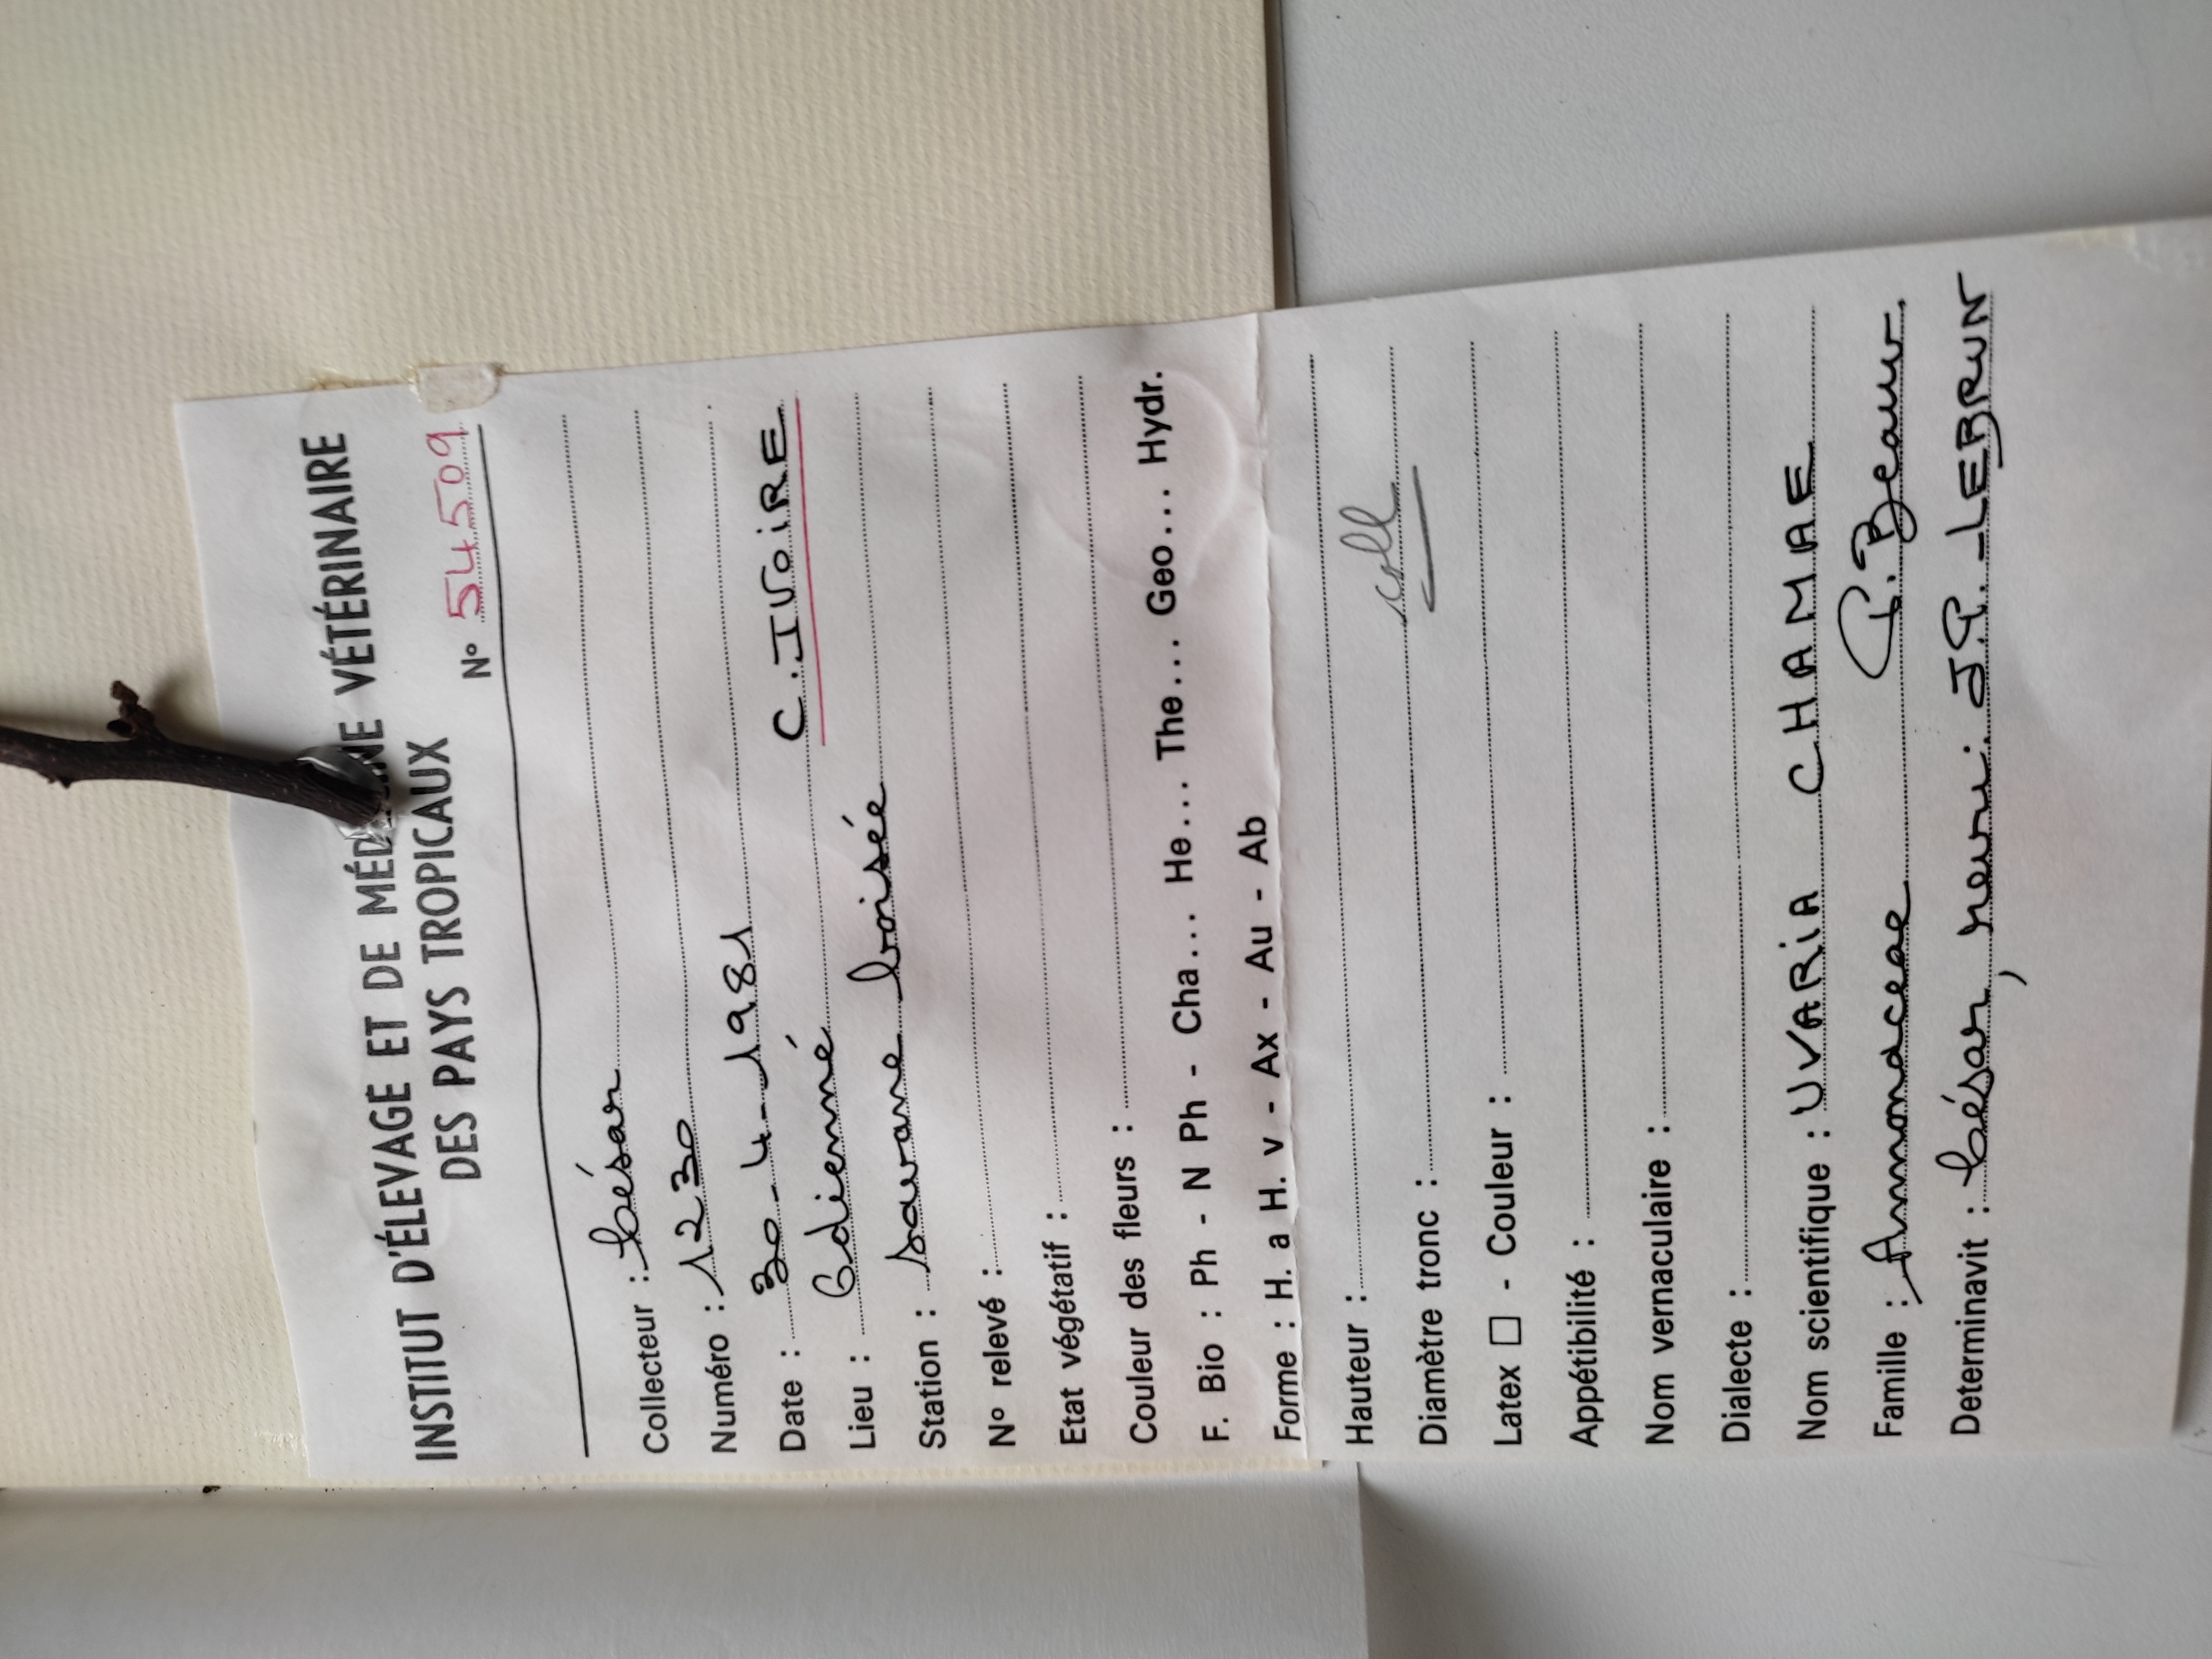 INSTITUT D'ÉLEVAGE ET DE MÉDECINE VÉTÉRINAIRE
DES PAYS TROPICAUX
N° 54509
Collecteur : César
Numéro : 1230
Date : 30-4-1981
Lieu : Odienné C. IVOIRE
Station : savane boisée
N° relevé :
Etat végétatif :
Couleur des fleurs :
F. Bio : Ph - N Ph - Cha... He... The... Geo... Hydr.
Forme : H. a H. v - Ax - Au - Ab
Hauteur :
coll
Diamètre tronc :
Latex □ - Couleur :
Appétibilité :
Nom vernaculaire :
Dialecte :
Nom scientifique : UVARIA CHAMAE
P. Beauv.
Famille : Annonaceae
Determinavit : César, rev.: J.P. LEBRUN